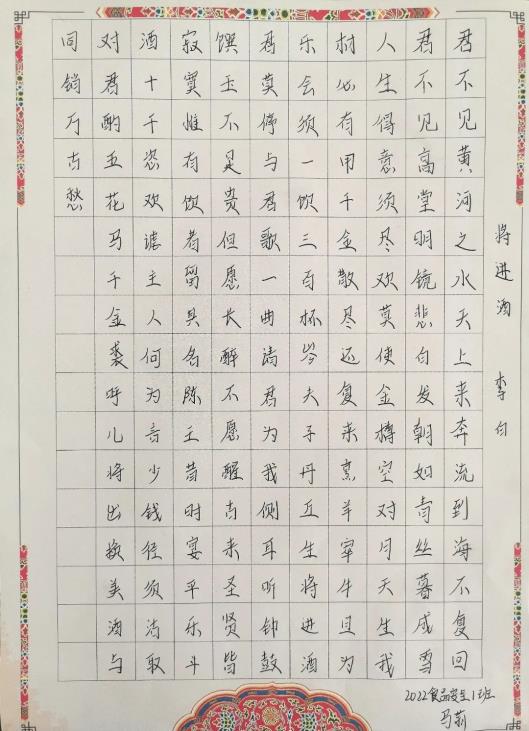 将进酒 李白
君不见黄河之水天上来奔流到海不复回
君不见高堂明镜悲白发朝如青丝暮成雪
人生得意须尽欢莫使金樽空对月天生我
材必有用千金散尽还复来烹羊宰牛且为
乐会须一饮三百杯岑夫子丹丘生将进酒
君莫停与君歌一曲请君为我侧耳听钟鼓
馔玉不足贵但愿长醉不愿醒古来圣贤皆
寂寞惟有饮者留其名陈王昔时宴平乐斗
酒十千恣欢谑主人何为言少钱径须沽取
对君酌五花马千金裘呼儿将出换美酒与
同销万古愁
2022食品安全1班
马莉